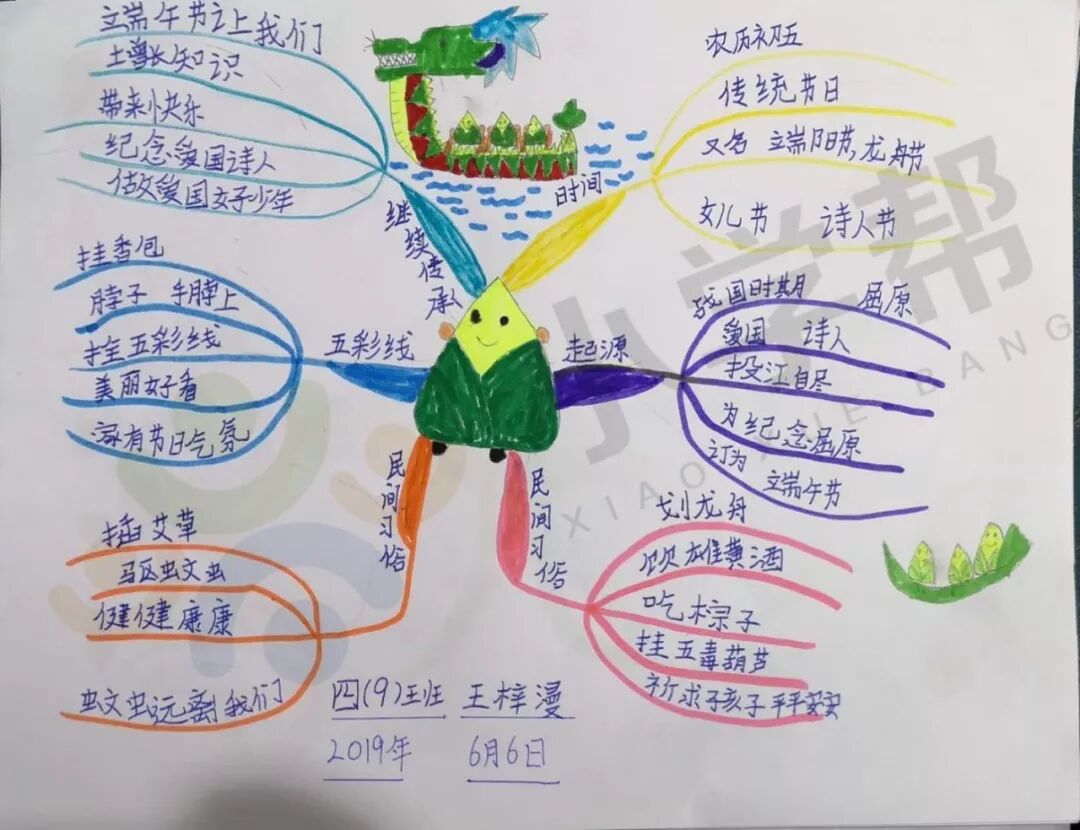 端午节让我们
增长知识
带来快乐
纪念爱国诗人
做爱国好少年
继续传承
时间
农历初五
传统节日
又名 端阳节,龙舟节
女儿节 诗人节
挂香包
脖子 手脖上
拴五彩线
美丽好看
富有节日气氛
五彩线
起源
战国时期 屈原
爱国 诗人
投江自尽
为纪念屈原
订为 端午节
民间习俗
插艾草
驱蚊
健健康康
蚊虫远离我们
民间习俗
划龙舟
饮雄黄酒
吃粽子
挂五毒葫芦
祈求孩子平平安安
四(9)班 王梓漫
2019年 6月6日
小学帮
XIAO XUE BANG